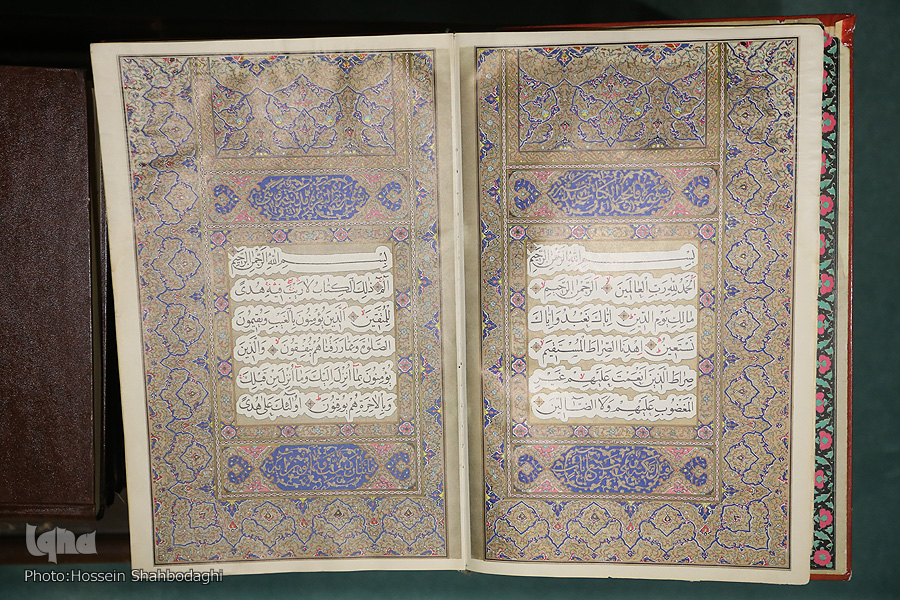 بِسْمِ اللَّهِ الرَّحْمَٰنِ الرَّحِيمِ
الْحَمْدُ لِلَّهِ رَبِّ الْعَالَمِينَ الرَّحْمَٰنِ الرَّحِيمِ
مَالِكِ يَوْمِ الدِّينِ إِيَّاكَ نَعْبُدُ وَإِيَّاكَ
نَسْتَعِينُ اهْدِنَا الصِّرَاطَ الْمُسْتَقِيمَ
صِرَاطَ الَّذِينَ أَنْعَمْتَ عَلَيْهِمْ غَيْرِ
الْمَغْضُوبِ عَلَيْهِمْ وَلَا الضَّالِّينَ
بِسْمِ اللَّهِ الرَّحْمَٰنِ الرَّحِيمِ
الم ذَٰلِكَ الْكِتَابُ لَا رَيْبَ فِيهِ هُدًى
لِلْمُتَّقِينَ الَّذِينَ يُؤْمِنُونَ بِالْغَيْبِ وَيُقِيمُونَ
الصَّلَاةَ وَمِمَّا رَزَقْنَاهُمْ يُنْفِقُونَ وَالَّذِينَ
يُؤْمِنُونَ بِمَا أُنْزِلَ إِلَيْكَ وَمَا أُنْزِلَ مِنْ قَبْلِكَ
وَبِالْآخِرَةِ هُمْ يُوقِنُونَ أُولَٰئِكَ عَلَىٰ هُدًى
iqna
Photo:Hossein Shahbodaghi